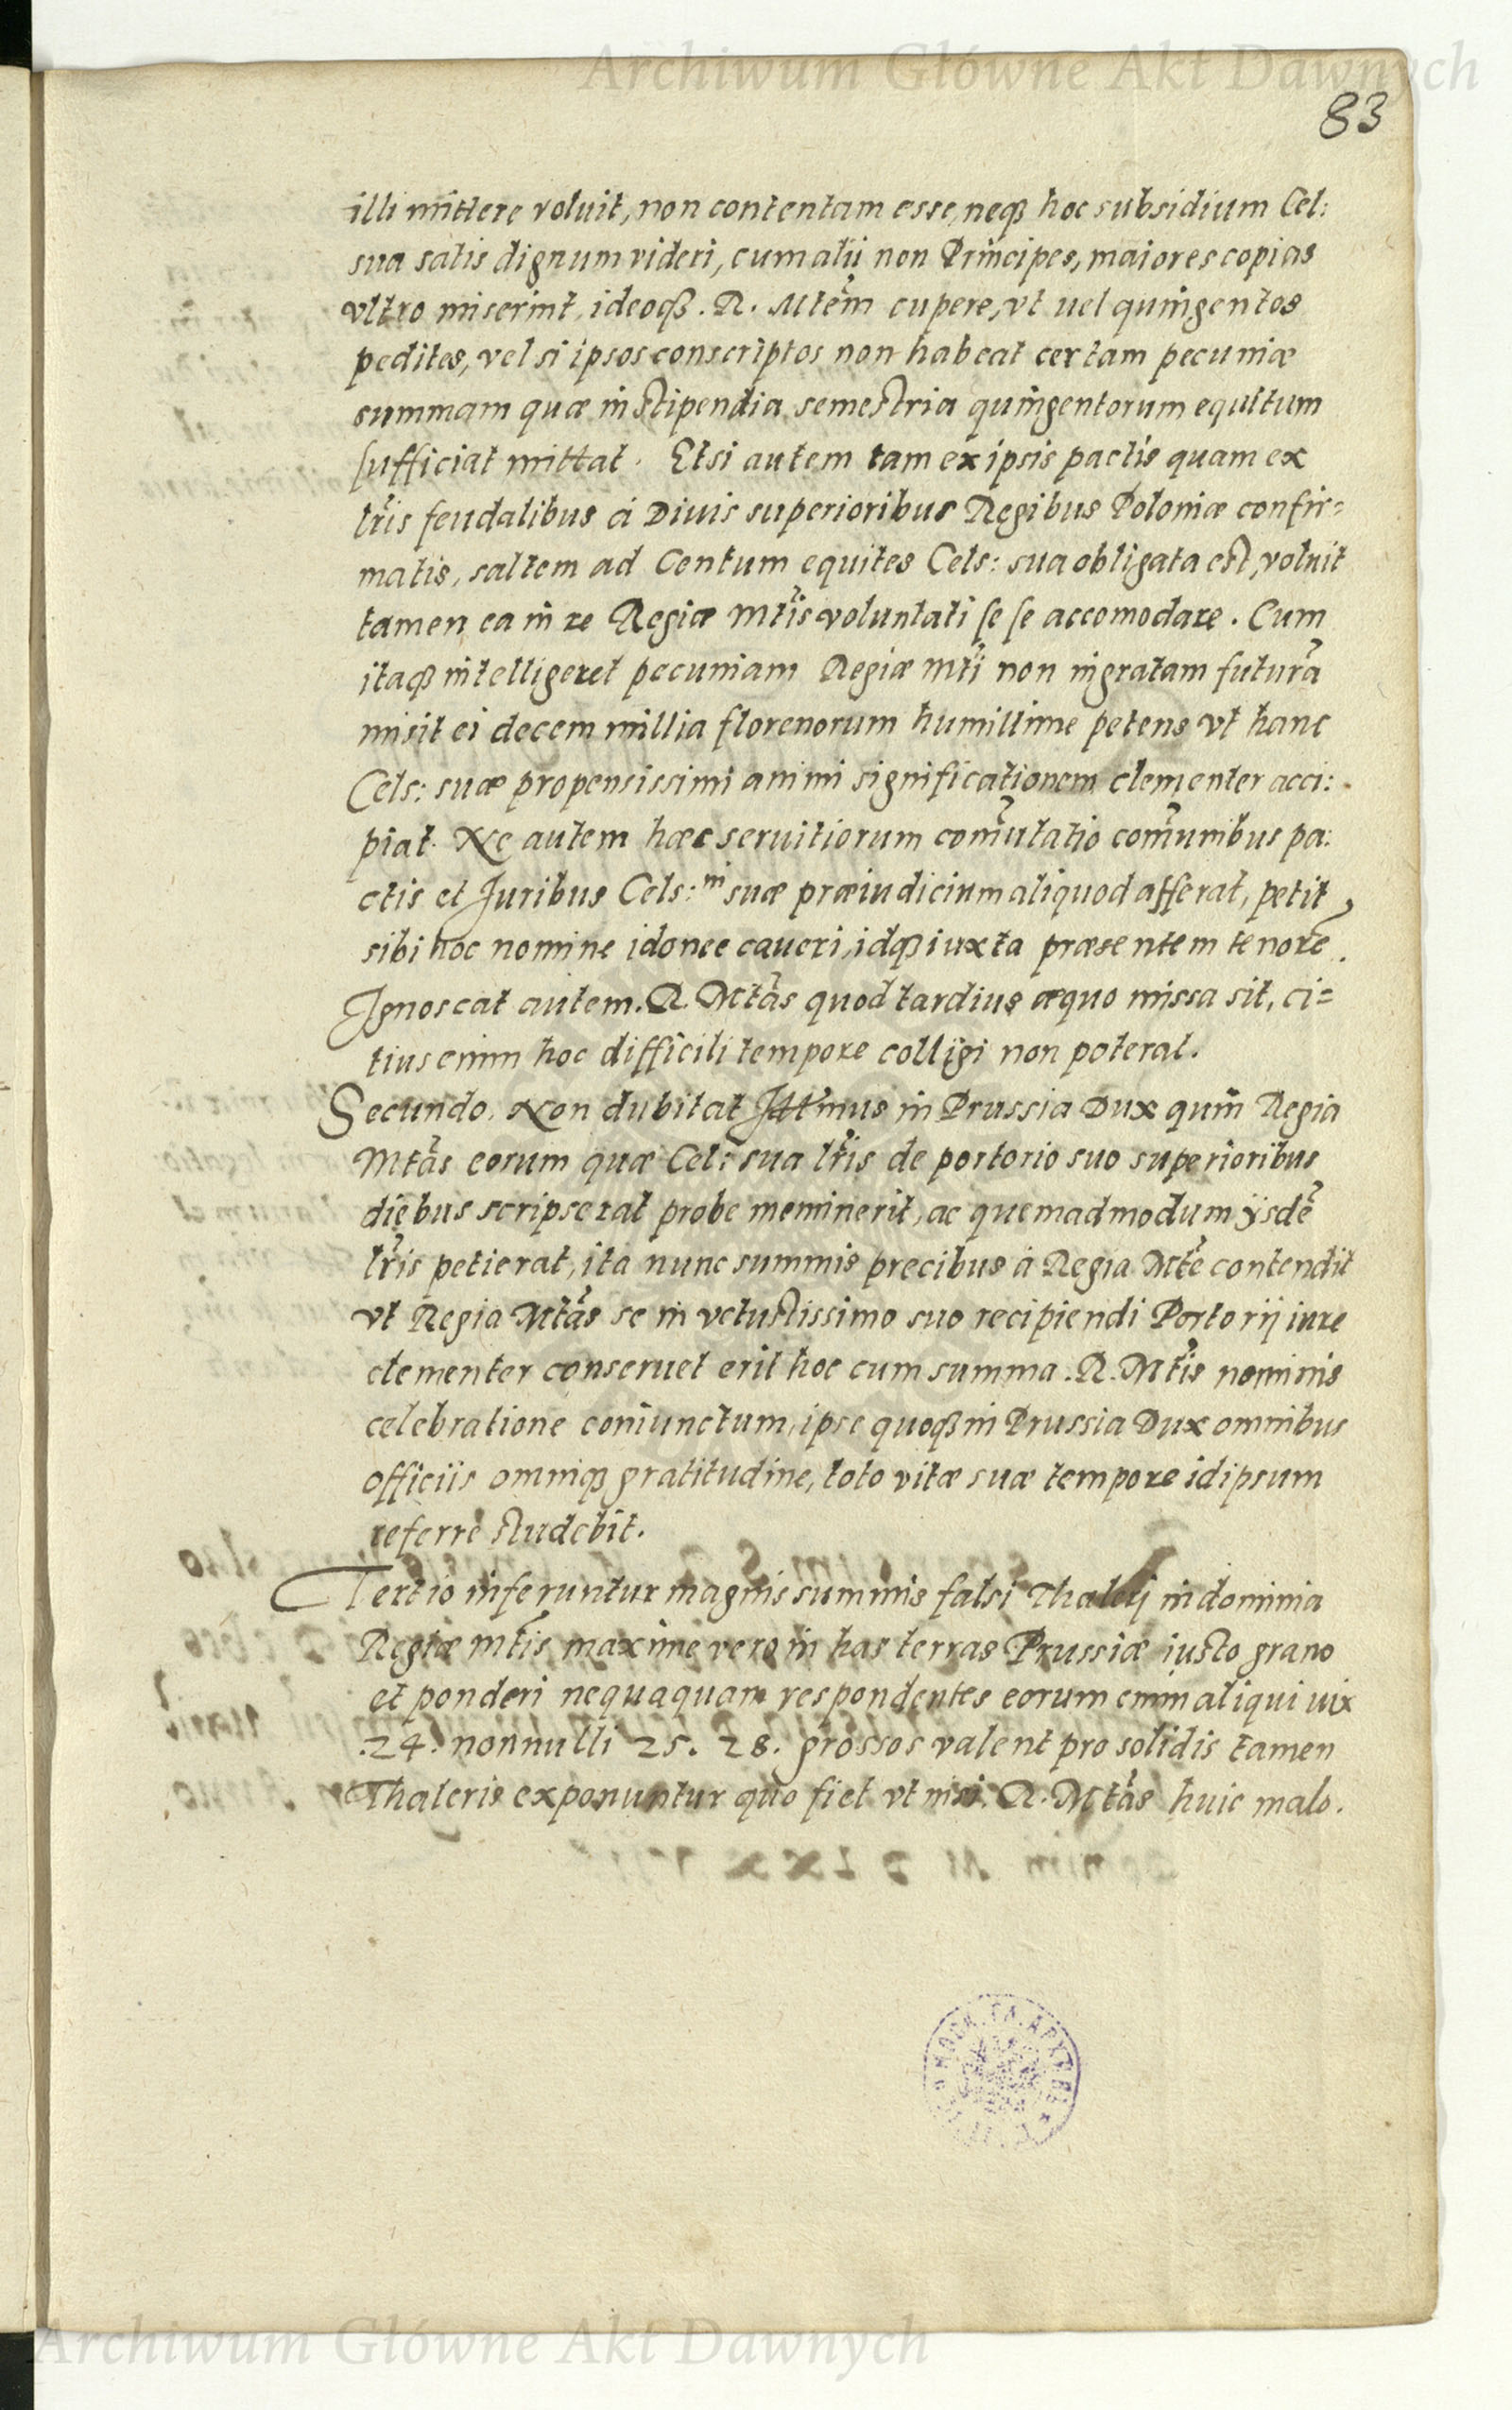 Archiwum Główne Akt Dawnych
83
illi mittere voluit, non contentam esse, neqꝫ hoc subsidium Cel:
sua satis dignum videri, cum alii non Principes, maiores copias
vltro miserint, ideoqꝫ. R. Mtem cupere, vt uel quingentos
pedites, vel si ipsos conscriptos non habeat certam pecuniæ
summam quæ in stipendia semestria quingentorum equitum
sufficiat mittat. Etsi autem tam ex ipsis pactis quam ex
lris feudalibus á Diuis superioribus Regibus Poloniæ confir=
matis, saltem ad Centum equites Cels: sua obligata est, voluit
tamen ea in re Regiæ Mtis voluntati se se accomodare. Cum
itaqꝫ intelligeret pecuniam Regiæ Mti non ingratam futurã
misit ei decem millia florenorum humillime petens vt hanc
Cels: suæ propensissimi animi significationem clementer acci:
piat. Ne autem hæc seruitiorum com̃utatio com̃unibus pa:
ctis et Juribus Cels: suæ præiudicium aliquod afferat, petit
sibi hoc nomine idonee caueri, idqꝫ iuxta præsentem tenorẽ.
Ignoscat autem. R. Mtas quod tardius æquo missa sit, ci=
tius enim hoc difficili tempore colligi non poterat.
Secundo. Non dubitat Illmus in Prussia Dux quin Regia
Mtas eorum quæ Cel: sua lris de portorio suo superioribus
diebus scripserat probe meminerit, ac quemadmodum ijsdẽ
lris petierat, ita nunc summis precibus á Regia Mte contendit
vt Regia Mtas se in vetustissimo suo recipiendi Portorij iure
clementer conseruet erit hoc cum summa. R. Mtis nominis
celebratione coniunctum, ipse quoqꝫ in Prussia Dux omnibus
officiis omniqꝫ gratitudine, toto vitæ suæ tempore idipsum
referre studebit.
Tertio inferuntur magnis summis falsi Thaleri in dominia
Regiæ Mtis maxime vero in has terras Prussiæ iusto grano
et ponderi nequaquam respondentes eorum enim aliqui uix
.24. nonnulli 25. 28. grossos valent pro solidis tamen
Thaleris exponuntur quo fiet vt nisi. R. Mtas huic malo.
Archiwum Główne Akt Dawnych